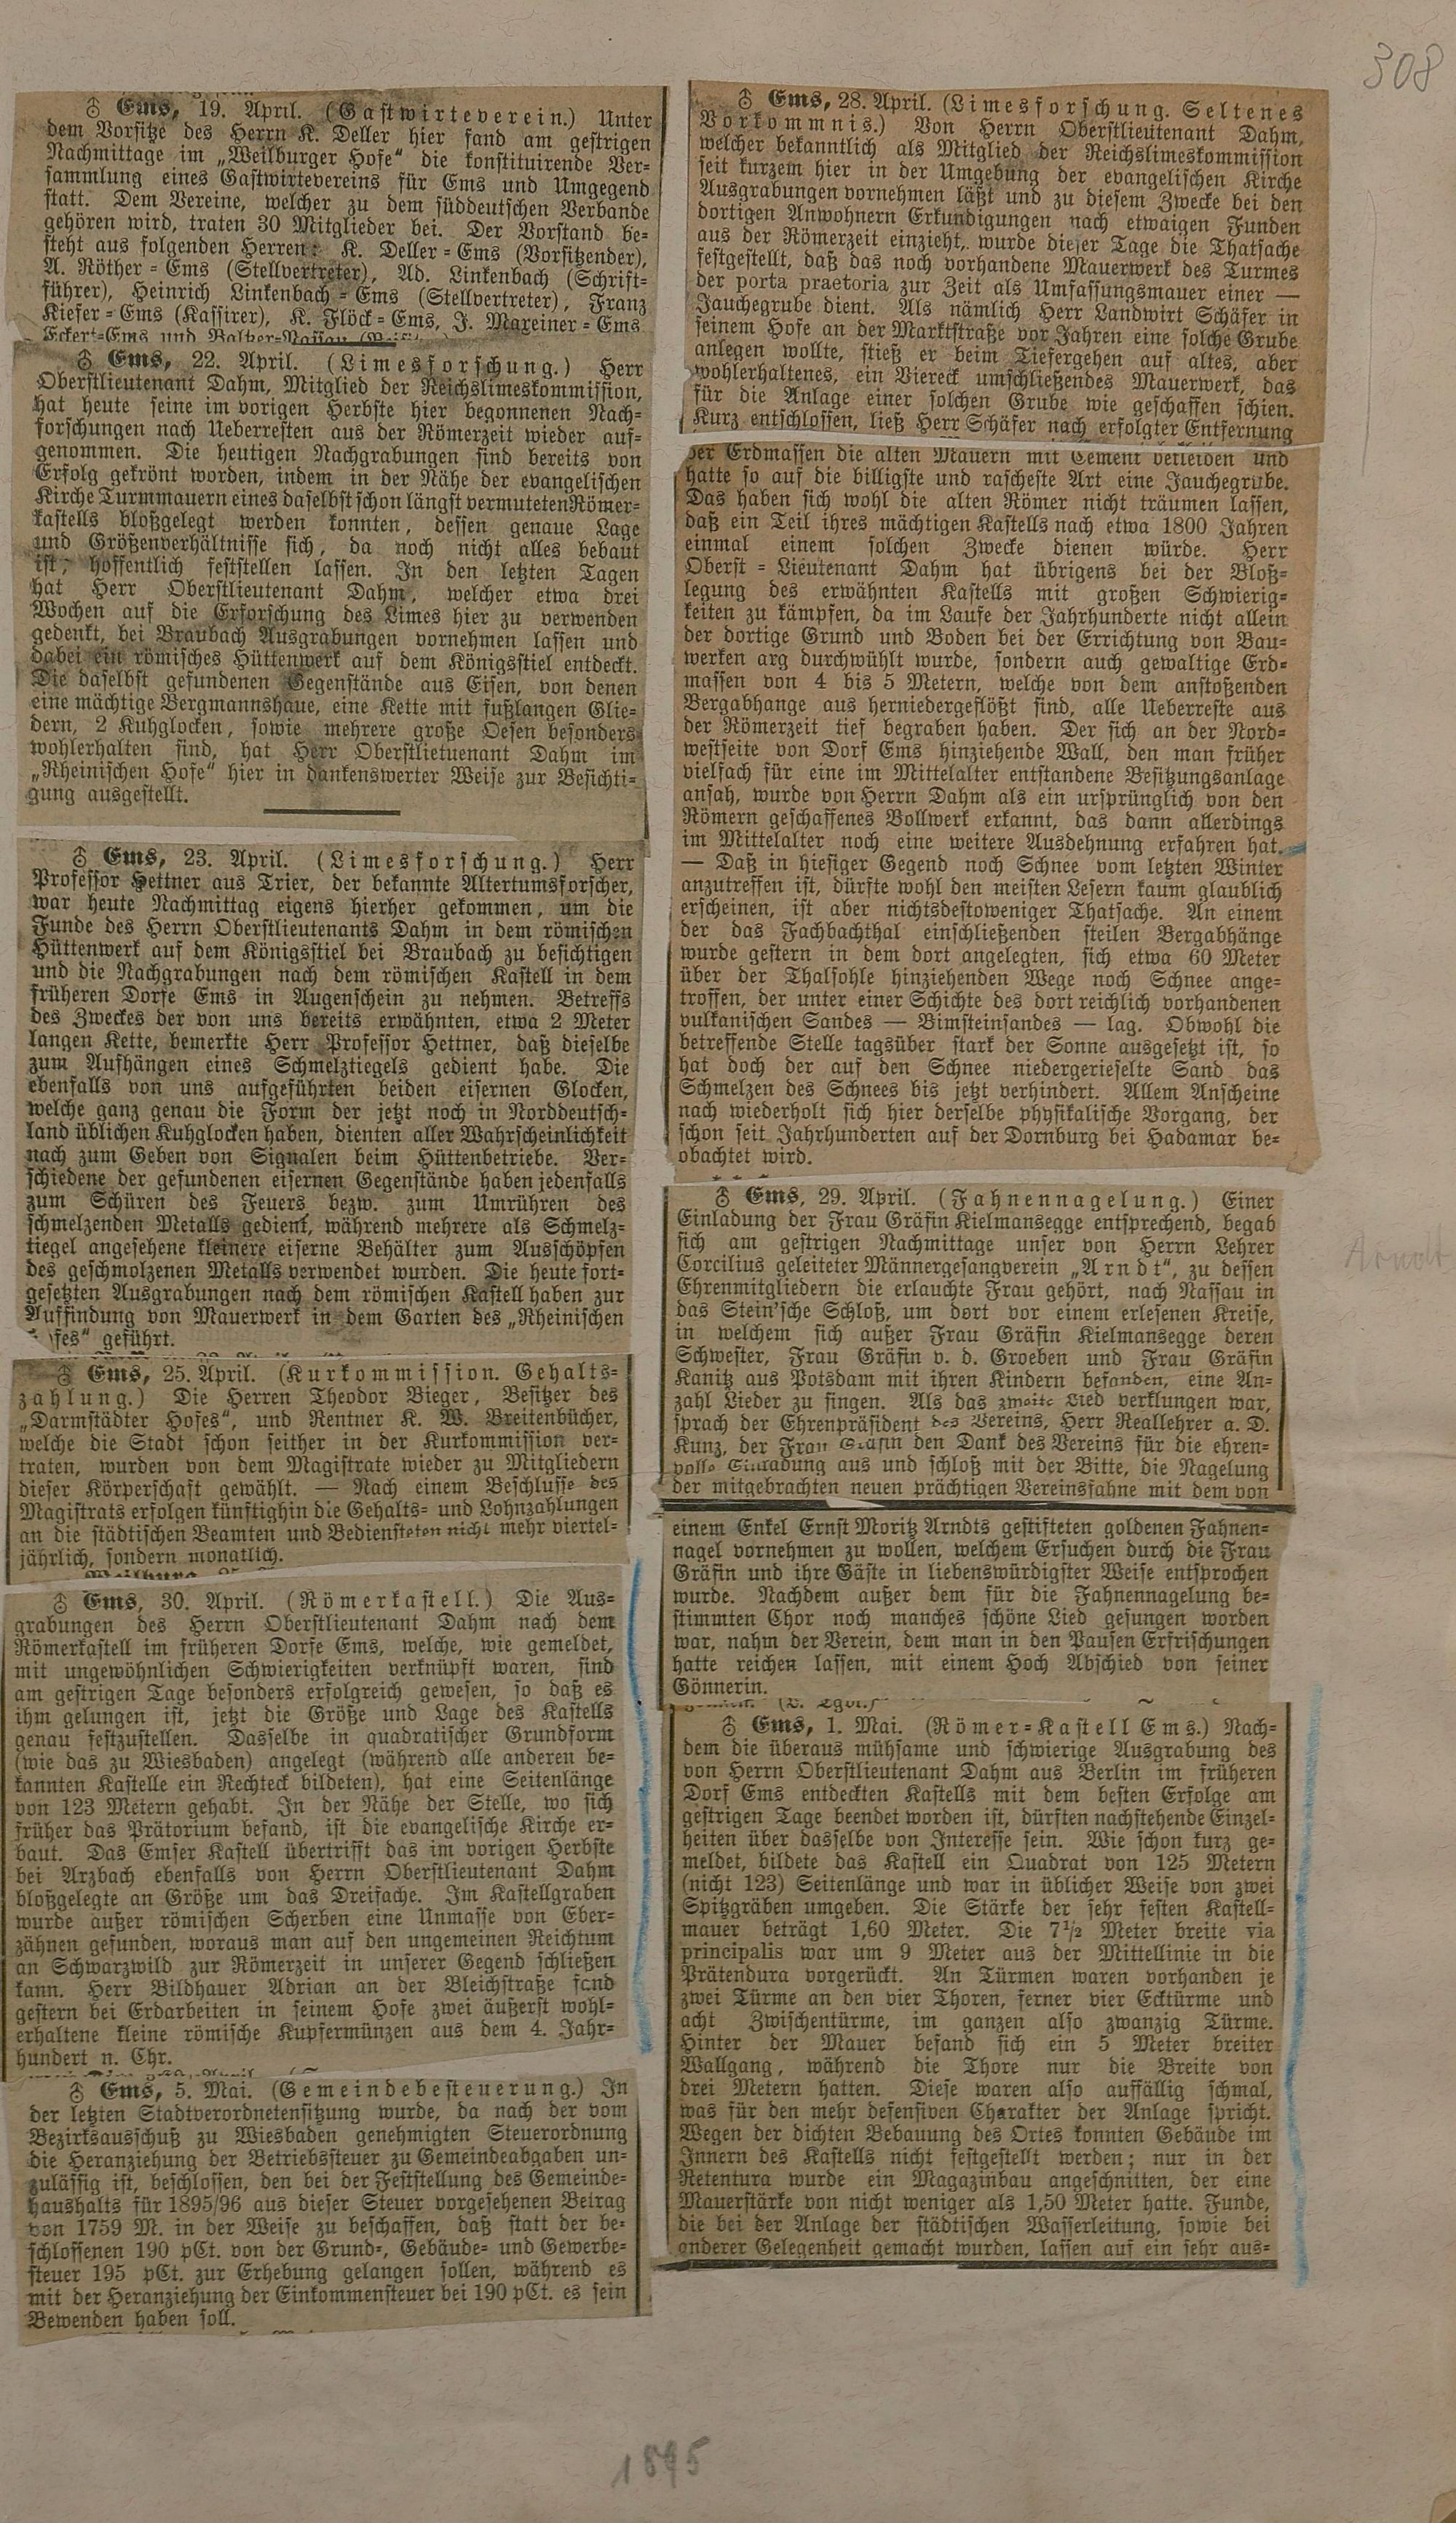 308
♁ Ems, 19. April. (Gastwirteverein.) Unter
dem Vorsitze des Herrn K. Deller hier fand am gestrigen
Nachmittage im „Weilburger Hofe“ die konstituirende Ver-
sammlung eines Gastwirtevereins für Ems und Umgegend
statt. Dem Vereine, welcher zu dem süddeutschen Verbande
gehören wird, traten 30 Mitglieder bei. Der Vorstand be-
steht aus folgenden Herren: K. Deller-Ems (Vorsitzender),
A. Röther-Ems (Stellvertreter), Ad. Linkenbach (Schrift-
führer), Heinrich Linkenbach-Ems (Stellvertreter), Franz
Kiefer-Ems (Kassirer), K. Flöck-Ems, J. Maxeiner-Ems
Eckert-Ems und Balzer-Nassau
♁ Ems, 22. April. (Limesforschung.) Herr
Oberstlieutenant Dahm, Mitglied der Reichslimeskommission,
hat heute seine im vorigen Herbste hier begonnenen Nach-
forschungen nach Ueberresten aus der Römerzeit wieder auf-
genommen. Die heutigen Nachgrabungen sind bereits von
Erfolg gekrönt worden, indem in der Nähe der evangelischen
Kirche Turmmauern eines daselbst schon längst vermuteten Römer-
kastells bloßgelegt werden konnten, dessen genaue Lage
und Größenverhältnisse sich, da noch nicht alles bebaut
ist, hoffentlich feststellen lassen. In den letzten Tagen
hat Herr Oberstlieutenant Dahm, welcher etwa drei
Wochen auf die Erforschung des Limes hier zu verwenden
gedenkt, bei Braubach Ausgrabungen vornehmen lassen und
dabei ein römisches Hüttenwerk auf dem Königsstiel entdeckt.
Die daselbst gefundenen Gegenstände aus Eisen, von denen
eine mächtige Bergmannshaue, eine Kette mit fußlangen Glie-
dern, 2 Kuhglocken, sowie mehrere große Oesen besonders
wohlerhalten sind, hat Herr Oberstlietuenant Dahm im
„Rheinischen Hofe“ hier in dankenswerter Weise zur Besichti-
gung ausgestellt.
♁ Ems, 23. April. (Limesforschung.) Herr
Professor Hettner aus Trier, der bekannte Altertumsforscher,
war heute Nachmittag eigens hierher gekommen, um die
Funde des Herrn Oberstlieutenants Dahm in dem römischen
Hüttenwerk auf dem Königsstiel bei Braubach zu besichtigen
und die Nachgrabungen nach dem römischen Kastell in dem
früheren Dorfe Ems in Augenschein zu nehmen. Betreffs
des Zweckes der von uns bereits erwähnten, etwa 2 Meter
langen Kette, bemerkte Herr Professor Hettner, daß dieselbe
zum Aufhängen eines Schmelztiegels gedient habe. Die
ebenfalls von uns aufgeführten beiden eisernen Glocken,
welche ganz genau die Form der jetzt noch in Norddeutsch-
land üblichen Kuhglocken haben, dienten aller Wahrscheinlichkeit
nach zum Geben von Signalen beim Hüttenbetriebe. Ver-
schiedene der gefundenen eisernen Gegenstände haben jedenfalls
zum Schüren des Feuers bezw. zum Umrühren des
schmelzenden Metalls gedient, während mehrere als Schmelz-
tiegel angesehene kleinere eiserne Behälter zum Ausschöpfen
des geschmolzenen Metalls verwendet wurden. Die heute fort-
gesetzten Ausgrabungen nach dem römischen Kastell haben zur
Auffindung von Mauerwerk in dem Garten des „Rheinischen
fes“ geführt.
♁ Ems, 25. April. (Kurkommission. Gehalts-
zahlung.) Die Herren Theodor Bieger, Besitzer des
„Darmstädter Hofes“, und Rentner K. W. Breitenbücher,
welche die Stadt schon seither in der Kurkommission ver-
traten, wurden von dem Magistrate wieder zu Mitgliedern
dieser Körperschaft gewählt. — Nach einem Beschlusse des
Magistrats erfolgen künftighin die Gehalts- und Lohnzahlungen
an die städtischen Beamten und Bediensteten nicht mehr viertel-
jährlich, sondern monatlich.
♁ Ems, 30. April. (Römerkastell.) Die Aus-
grabungen des Herrn Oberstlieutenant Dahm nach dem
Römerkastell im früheren Dorfe Ems, welche, wie gemeldet,
mit ungewöhnlichen Schwierigkeiten verknüpft waren, sind
am gestrigen Tage besonders erfolgreich gewesen, so daß es
ihm gelungen ist, jetzt die Größe und Lage des Kastells
genau festzustellen. Dasselbe in quadratischer Grundform
(wie das zu Wiesbaden) angelegt (während alle anderen be-
kannten Kastelle ein Rechteck bildeten), hat eine Seitenlänge
von 123 Metern gehabt. In der Nähe der Stelle, wo sich
früher das Prätorium befand, ist die evangelische Kirche er-
baut. Das Emser Kastell übertrifft das im vorigen Herbste
bei Arzbach ebenfalls von Herrn Oberstlieutenant Dahm
bloßgelegte an Größe um das Dreifache. Im Kastellgraben
wurde außer römischen Scherben eine Unmasse von Eber-
zähnen gefunden, woraus man auf den ungemeinen Reichtum
an Schwarzwild zur Römerzeit in unserer Gegend schließen
kann. Herr Bildhauer Adrian an der Bleichstraße fand
gestern bei Erdarbeiten in seinem Hofe zwei äußerst wohl-
erhaltene kleine römische Kupfermünzen aus dem 4. Jahr-
hundert n. Chr.
♁ Ems, 5. Mai. (Gemeindebesteuerung.) In
der letzten Stadtverordnetensitzung wurde, da nach der vom
Bezirksausschuß zu Wiesbaden genehmigten Steuerordnung
die Heranziehung der Betriebssteuer zu Gemeindeabgaben un-
zulässig ist, beschlossen, den bei der Feststellung des Gemeinde-
haushalts für 1895/96 aus dieser Steuer vorgesehenen Betrag
von 1759 M. in der Weise zu beschaffen, daß statt der be-
schlossenen 190 pCt. von der Grund-, Gebäude- und Gewerbe-
steuer 195 pCt. zur Erhebung gelangen sollen, während es
mit der Heranziehung der Einkommensteuer bei 190 pCt. es sein
Bewenden haben soll.
♁ Ems, 28. April. (Limesforschung. Seltenes
Vorkommnis.) Von Herrn Oberstlieutenant Dahm,
welcher bekanntlich als Mitglied der Reichslimeskommission
seit kurzem hier in der Umgebung der evangelischen Kirche
Ausgrabungen vornehmen läßt und zu diesem Zwecke bei den
dortigen Anwohnern Erkundigungen nach etwaigen Funden
aus der Römerzeit einzieht, wurde dieser Tage die Thatsache
festgestellt, daß das noch vorhandene Mauerwerk des Turmes
der porta praetoria zur Zeit als Umfassungsmauer einer —
Jauchegrube dient. Als nämlich Herr Landwirt Schäfer in
seinem Hofe an der Marktstraße vor Jahren eine solche Grube
anlegen wollte, stieß er beim Tiefergehen auf altes, aber
wohlerhaltenes, ein Viereck umschließendes Mauerwerk, das
für die Anlage einer solchen Grube wie geschaffen schien.
Kurz entschlossen, ließ Herr Schäfer nach erfolgter Entfernung
der Erdmassen die alten Mauern mit Cement verkleiden und
hatte so auf die billigste und rascheste Art eine Jauchegrube.
Das haben sich wohl die alten Römer nicht träumen lassen,
daß ein Teil ihres mächtigen Kastells nach etwa 1800 Jahren
einmal einem solchen Zwecke dienen würde. Herr
Oberst-Lieutenant Dahm hat übrigens bei der Bloß-
legung des erwähnten Kastells mit großen Schwierig-
keiten zu kämpfen, da im Laufe der Jahrhunderte nicht allein
der dortige Grund und Boden bei der Errichtung von Bau-
werken arg durchwühlt wurde, sondern auch gewaltige Erd-
massen von 4 bis 5 Metern, welche von dem anstoßenden
Bergabhange aus herniedergeflößt sind, alle Ueberreste aus
der Römerzeit tief begraben haben. Der sich an der Nord-
westseite von Dorf Ems hinziehende Wall, den man früher
vielfach für eine im Mittelalter entstandene Besitzungsanlage
ansah, wurde von Herrn Dahm als ein ursprünglich von den
Römern geschaffenes Bollwerk erkannt, das dann allerdings
im Mittelalter noch eine weitere Ausdehnung erfahren hat.
— Daß in hiesiger Gegend noch Schnee vom letzten Winter
anzutreffen ist, dürfte wohl den meisten Lesern kaum glaublich
erscheinen, ist aber nichtsdestoweniger Thatsache. An einem
der das Fachbachthal einschließenden steilen Bergabhänge
wurde gestern in dem dort angelegten, sich etwa 60 Meter
über der Thalsohle hinziehenden Wege noch Schnee ange-
troffen, der unter einer Schichte des dort reichlich vorhandenen
vulkanischen Sandes — Bimsteinsandes — lag. Obwohl die
betreffende Stelle tagsüber stark der Sonne ausgesetzt ist, so
hat doch der auf den Schnee niedergerieselte Sand das
Schmelzen des Schnees bis jetzt verhindert. Allem Anscheine
nach wiederholt sich hier derselbe physikalische Vorgang, der
schon seit Jahrhunderten auf der Dornburg bei Hadamar be-
obachtet wird.
♁ Ems, 29. April. (Fahnennagelung.) Einer
Einladung der Frau Gräfin Kielmansegge entsprechend, begab
sich am gestrigen Nachmittage unser von Herrn Lehrer
Corcilius geleiteter Männergesangverein „Arndt“, zu dessen
Ehrenmitgliedern die erlauchte Frau gehört, nach Nassau in
das Stein'sche Schloß, um dort vor einem erlesenen Kreise,
in welchem sich außer Frau Gräfin Kielmansegge deren
Schwester, Frau Gräfin v. d. Groeben und Frau Gräfin
Kanitz aus Potsdam mit ihren Kindern befanden, eine An-
zahl Lieder zu singen. Als das zweite Lied verklungen war,
sprach der Ehrenpräsident des Vereins, Herr Reallehrer a. D.
Kunz, der Frau Gräfin den Dank des Vereins für die ehren-
volle Einladung aus und schloß mit der Bitte, die Nagelung
der mitgebrachten neuen prächtigen Vereinsfahne mit dem von
einem Enkel Ernst Moritz Arndts gestifteten goldenen Fahnen-
nagel vornehmen zu wollen, welchem Ersuchen durch die Frau
Gräfin und ihre Gäste in liebenswürdigster Weise entsprochen
wurde. Nachdem außer dem für die Fahnennagelung be-
stimmten Chor noch manches schöne Lied gesungen worden
war, nahm der Verein, dem man in den Pausen Erfrischungen
hatte reichen lassen, mit einem Hoch Abschied von seiner
Gönnerin.
Arndt
♁ Ems, 1. Mai. (Römer-Kastell Ems.) Nach-
dem die überaus mühsame und schwierige Ausgrabung des
von Herrn Oberstlieutenant Dahm aus Berlin im früheren
Dorf Ems entdeckten Kastells mit dem besten Erfolge am
gestrigen Tage beendet worden ist, dürften nachstehende Einzel-
heiten über dasselbe von Interesse sein. Wie schon kurz ge-
meldet, bildete das Kastell ein Quadrat von 125 Metern
(nicht 123) Seitenlänge und war in üblicher Weise von zwei
Spitzgräben umgeben. Die Stärke der sehr festen Kastell-
mauer beträgt 1,60 Meter. Die 7½ Meter breite via
principalis war um 9 Meter aus der Mittellinie in die
Prätendura vorgerückt. An Türmen waren vorhanden je
zwei Türme an den vier Thoren, ferner vier Ecktürme und
acht Zwischentürme, im ganzen also zwanzig Türme.
Hinter der Mauer befand sich ein 5 Meter breiter
Wallgang, während die Thore nur die Breite von
drei Metern hatten. Diese waren also auffällig schmal,
was für den mehr defensiven Charakter der Anlage spricht.
Wegen der dichten Bebauung des Ortes konnten Gebäude im
Innern des Kastells nicht festgestellt werden; nur in der
Retentura wurde ein Magazinbau angeschnitten, der eine
Mauerstärke von nicht weniger als 1,50 Meter hatte. Funde,
die bei der Anlage der städtischen Wasserleitung, sowie bei
anderer Gelegenheit gemacht wurden, lassen auf ein sehr aus-
1895